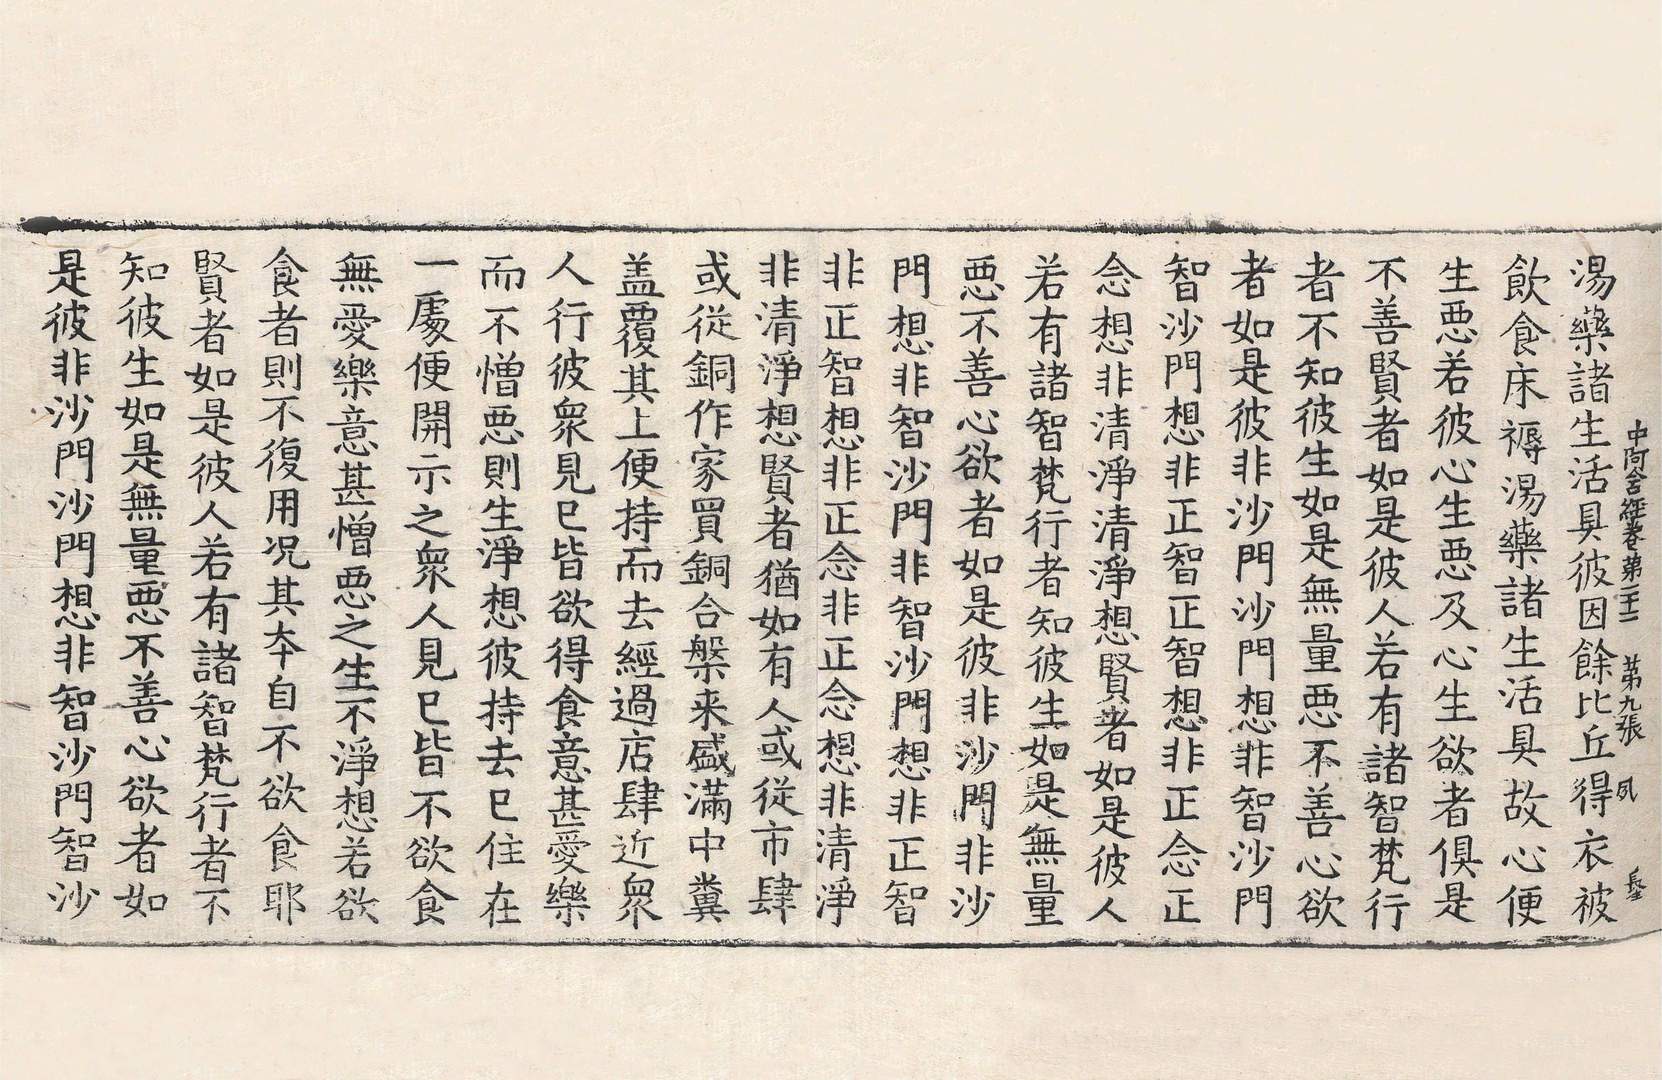 中阿含經卷第二十二 第九張 夙
湯藥諸生活具彼因餘比丘得衣被
飲食床褥湯藥諸生活具故心便
生悪若彼心生悪及心生欲者俱是
不善賢者如是彼人若有諸智梵行
者不知彼生如是無量悪不善心欲
者如是彼非沙門沙門想非智沙門
智沙門想非正智正智想非正念正
念想非清淨清淨想賢者如是彼人
若有諸智梵行者知彼生如是無量
悪不善心欲者如是彼非沙門非沙
門想非智沙門非智沙門想非正智
非正智想非正念非正念想非清淨
非清淨想賢者猶如有人或從市肆
或從銅作家買銅合槃来盛滿中糞
盖覆其上便持而去經過店肆近眾
人行彼眾見已皆欲得食意甚愛樂
而不憎悪則生淨想彼持去已住在
一處便開示之眾人見已皆不欲食
無愛樂意甚憎悪之生不淨想若欲
食者則不復用况其夲自不欲食耶
賢者如是彼人若有諸智梵行者不
知彼生如是無量悪不善心欲者如
是彼非沙門沙門想非智沙門智沙